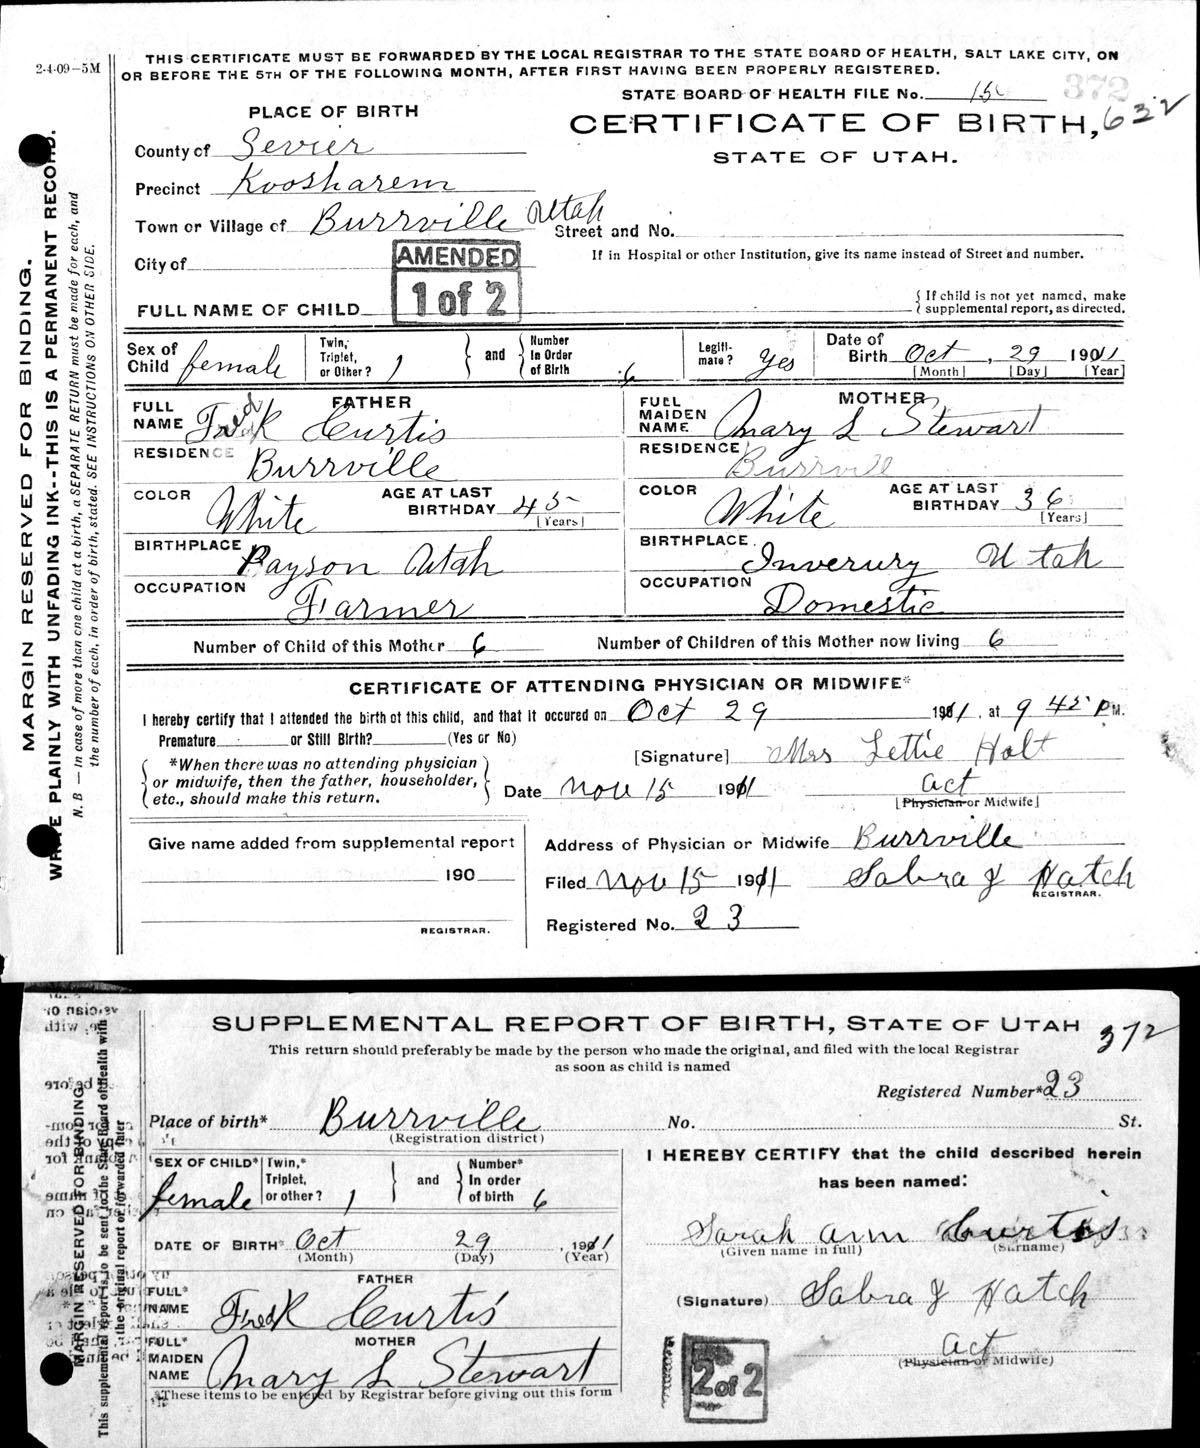 2-4-09—5M
THIS CERTIFICATE MUST BE FORWARDED BY THE LOCAL REGISTRAR TO THE STATE BOARD OF HEALTH, SALT LAKE CITY, ON
OR BEFORE THE 5TH OF THE FOLLOWING MONTH, AFTER FIRST HAVING BEEN PROPERLY REGISTERED.
STATE BOARD OF HEALTH FILE No. 372
PLACE OF BIRTH
CERTIFICATE OF BIRTH, 632
STATE OF UTAH.
County of Sevier
Precinct Koosharem
Town or Village of Burrville Utah
Street and No.
City of
If in Hospital or other Institution, give its name instead of Street and number.
AMENDED
1 of 2
FULL NAME OF CHILD
If child is not yet named, make
supplemental report, as directed.
Sex of Child female
Twin, Triplet, or Other? 1
and
Number In Order of Birth 6
Legiti-mate? Yes
Date of Birth Oct, 29 1911
[Month] [Day] [Year]
FATHER
FULL NAME Fredk Curtis
RESIDENCE Burrville
COLOR White
AGE AT LAST BIRTHDAY 45
[Years]
BIRTHPLACE Payson Utah
OCCUPATION Farmer
MOTHER
FULL MAIDEN NAME Mary L Stewart
RESIDENCE Burrvill
COLOR White
AGE AT LAST BIRTHDAY 36
[Years]
BIRTHPLACE. Inverury Utah
OCCUPATION Domestic
Number of Child of this Mother 6
Number of Children of this Mother now living 6
CERTIFICATE OF ATTENDING PHYSICIAN OR MIDWIFE*
I hereby certify that I attended the birth of this child, and that it occured on Oct 29 1911, at 9 45 P M.
Premature or Still Birth? (Yes or No)
[Signature] Mrs Lettie Holt
*When there was no attending physician
or midwife, then the father, householder,
etc., should make this return.
Date Nov 15 1911
act
[Physician or Midwife]
Give name added from supplemental report
190
REGISTRAR.
Address of Physician or Midwife Burrville
Filed Nov 15 1911 Sabra J Hatch
REGISTRAR.
Registered No. 23
MARGIN RESERVED FOR BINDING.
WRITE PLAINLY WITH UNFADING INK--THIS IS A PERMANENT RECORD.
N. B — In case of more than one child at a birth, a SEPARATE RETURN must be made for each, and
the number of each, in order of birth, stated. SEE INSTRUCTIONS ON OTHER SIDE.
SUPPLEMENTAL REPORT OF BIRTH, STATE OF UTAH 372
This return should preferably be made by the person who made the original, and filed with the local Registrar
as soon as child is named
Registered Number* 23
Place of birth* Burrville No. St.
(Registration district)
SEX OF CHILD* female
Twin,* Triplet, or other? 1
and
Number* In order of birth 6
DATE OF BIRTH* Oct 29, 1911
(Month) (Day) (Year)
FATHER
FULL* NAME Fredk Curtis
MOTHER
FULL* MAIDEN NAME Mary L Stewart
*These items to be entered by Registrar before giving out this form
I HEREBY CERTIFY that the child described herein
has been named:
Sarah Ann Curtis
(Given name in full) (Surname)
(Signature) Sabra J Hatch
act
(Physician or Midwife)
2 of 2
MARGIN RESERVED FOR BINDING
This supplemental report is to be sent to the State Board of Health with
the original report or forwarded later